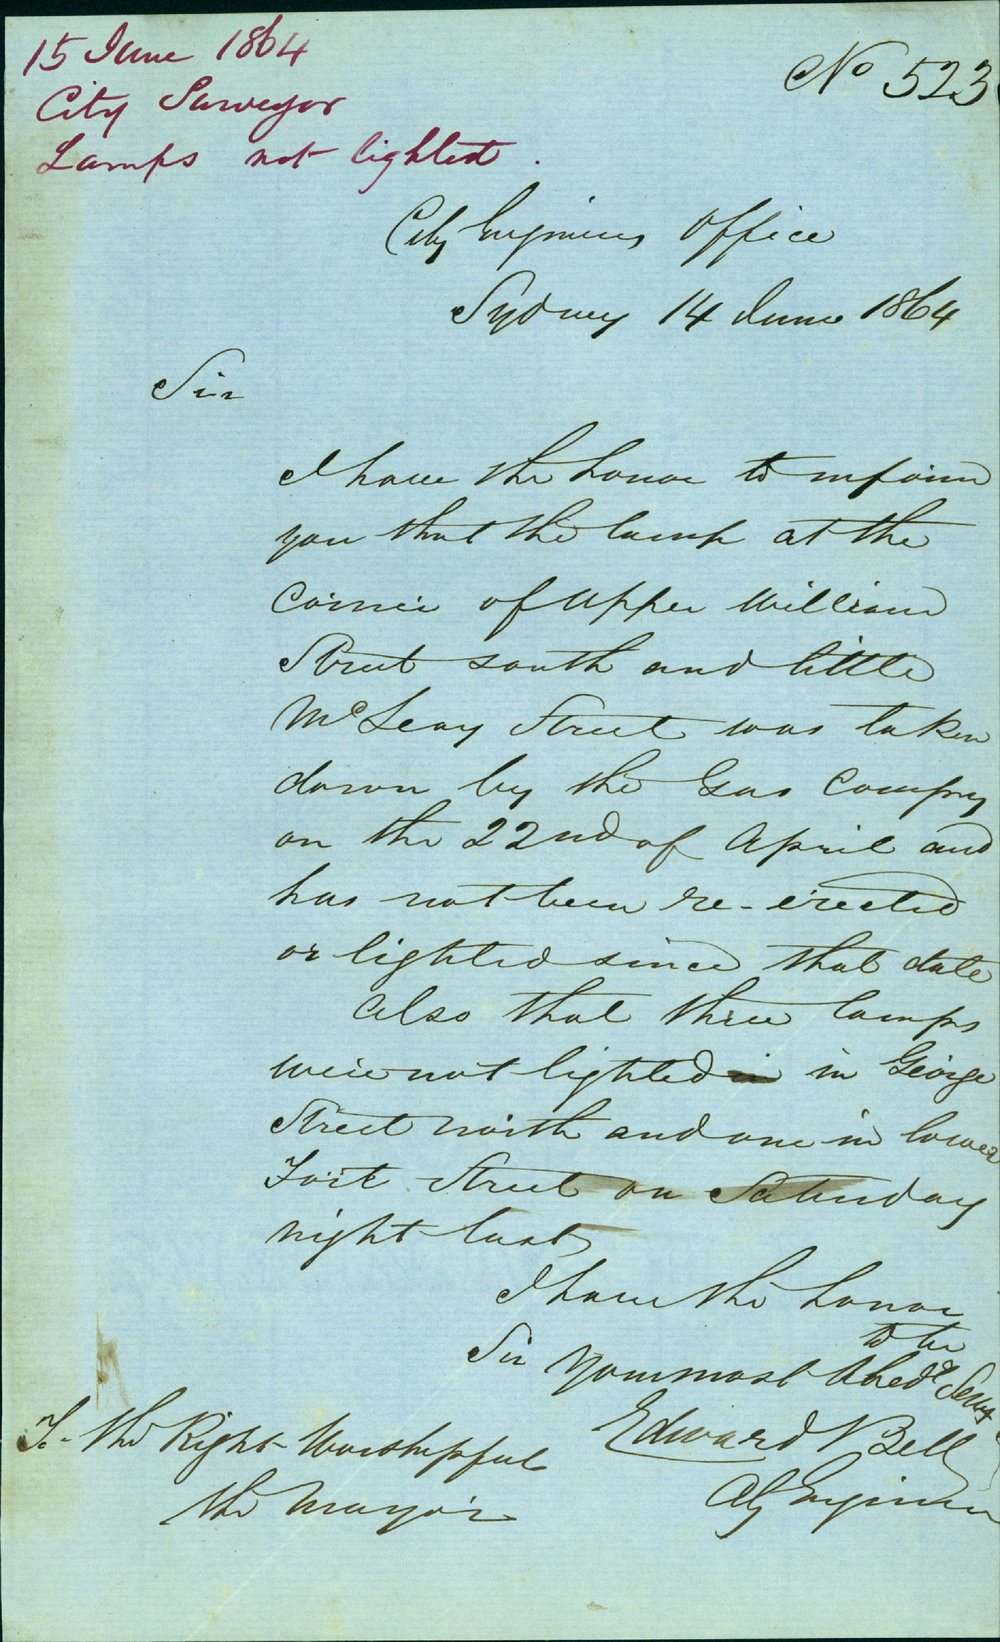 15 June 1864
City Surveyor
Lamps not lighted.
No 523
City Engineers Office
Sydney 14 June 1864
Sir
I have the honor to inform
you that the lamp at the
corner of Upper William
Street south and little
McLeay Street was taken
down by the Gas Company
on the 22nd of April and
has not been re-erected
or lighted since that date
Also that three lamps
were not lighted in George
Street north and one in lower
Fort Street on Saturday
night last
I have the honor
to be
Sir Your most Obedt Servt
Edward Bell
City Engineer
To the Right Worshipful
the Mayor